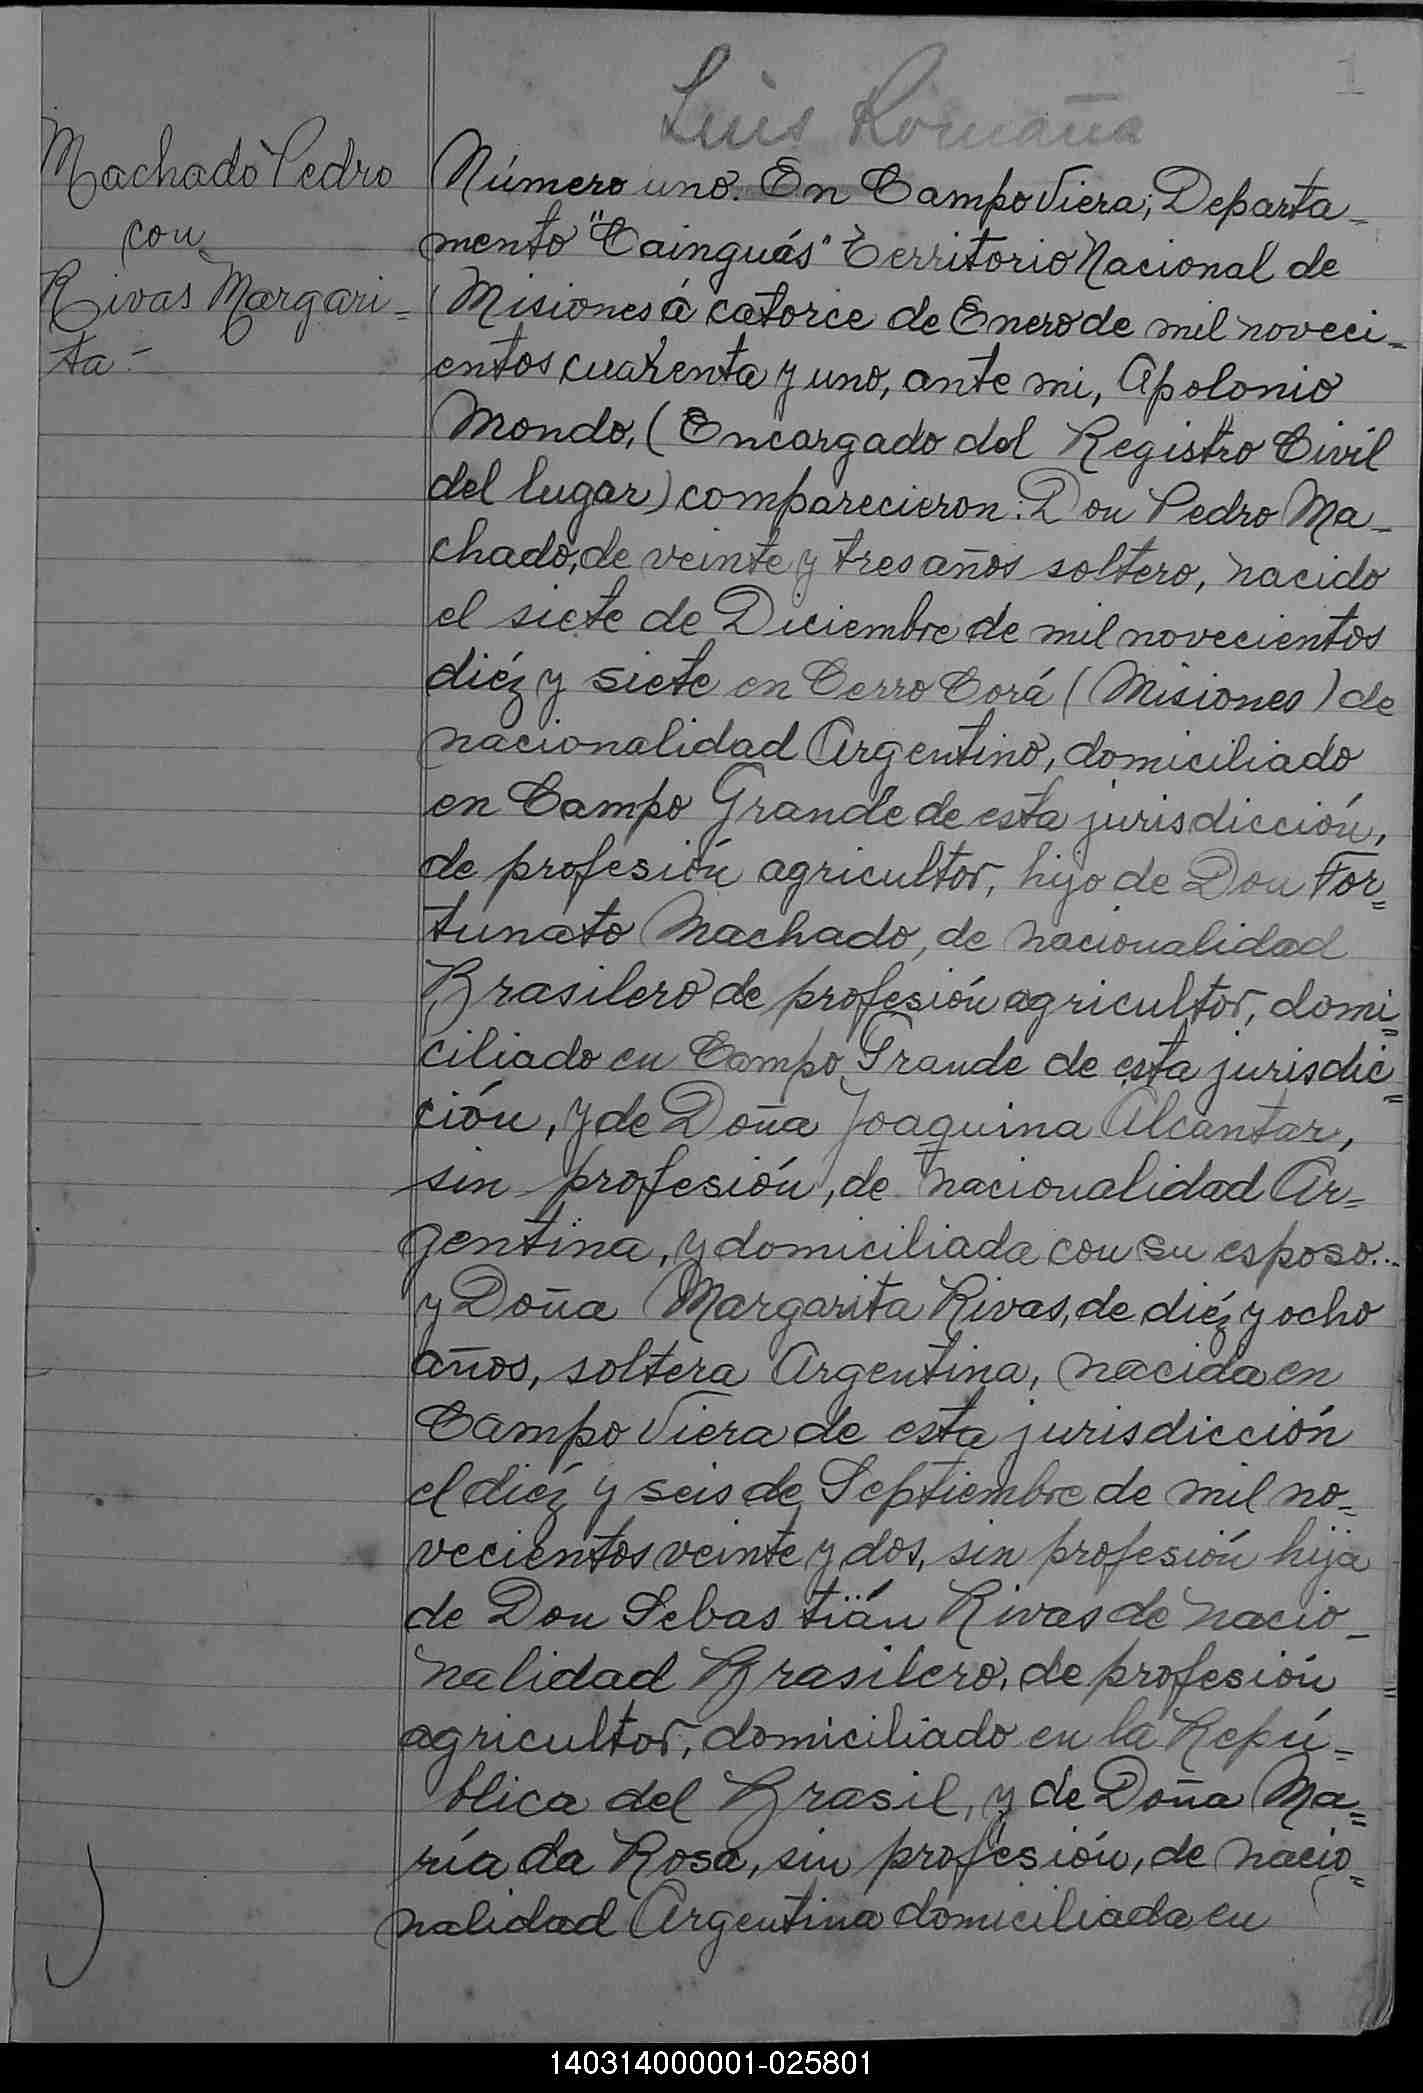 1
Luis Romaña
Machado Pedro
con
Rivas Margari=
ta.-
Número uno. En Campo Viera, Departa-
mento "Cainguás" Territorio Nacional de
Misiones á catorce de Enero de mil noveci-
entos cuarenta y uno, ante mi, Apolonio
Mondo, (Encargado del Registro Civil
del lugar) comparecieron: Don Pedro Ma-
chado, de veinte y tres años soltero, nacido
el siete de Diciembre de mil novecientos
diéz y siete en Cerro Corá (Misiones) de
nacionalidad Argentino, domiciliado
en Campo Grande de esta jurisdicción,
de profesión agricultor, hijo de Don For=
tunato Machado, de nacionalidad
Brasilero de profesión agricultor, domi=
ciliado en Campo Grande de esta jurisdic=
ción, y de Doña Joaquina Alcantar,
sin profesión, de nacionalidad Ar=
gentina, y domiciliada con su esposo...
y Doña Margarita Rivas, de diéz y ocho
años, soltera Argentina, nacida en
Campo Viera de esta jurisdicción
el diéz y seis de Septiembre de mil no=
vecientos veinte y dos, sin profesión hija
de Don Sebastián Rivas de nacio-
nalidad Brasilero, de profesión
agricultor, domiciliado en la Repú=
blica del Brasil, y de Doña Ma=
ría da Rosa, sin profesión, de nacio=
nalidad Argentina domiciliada en
140314000001-025801